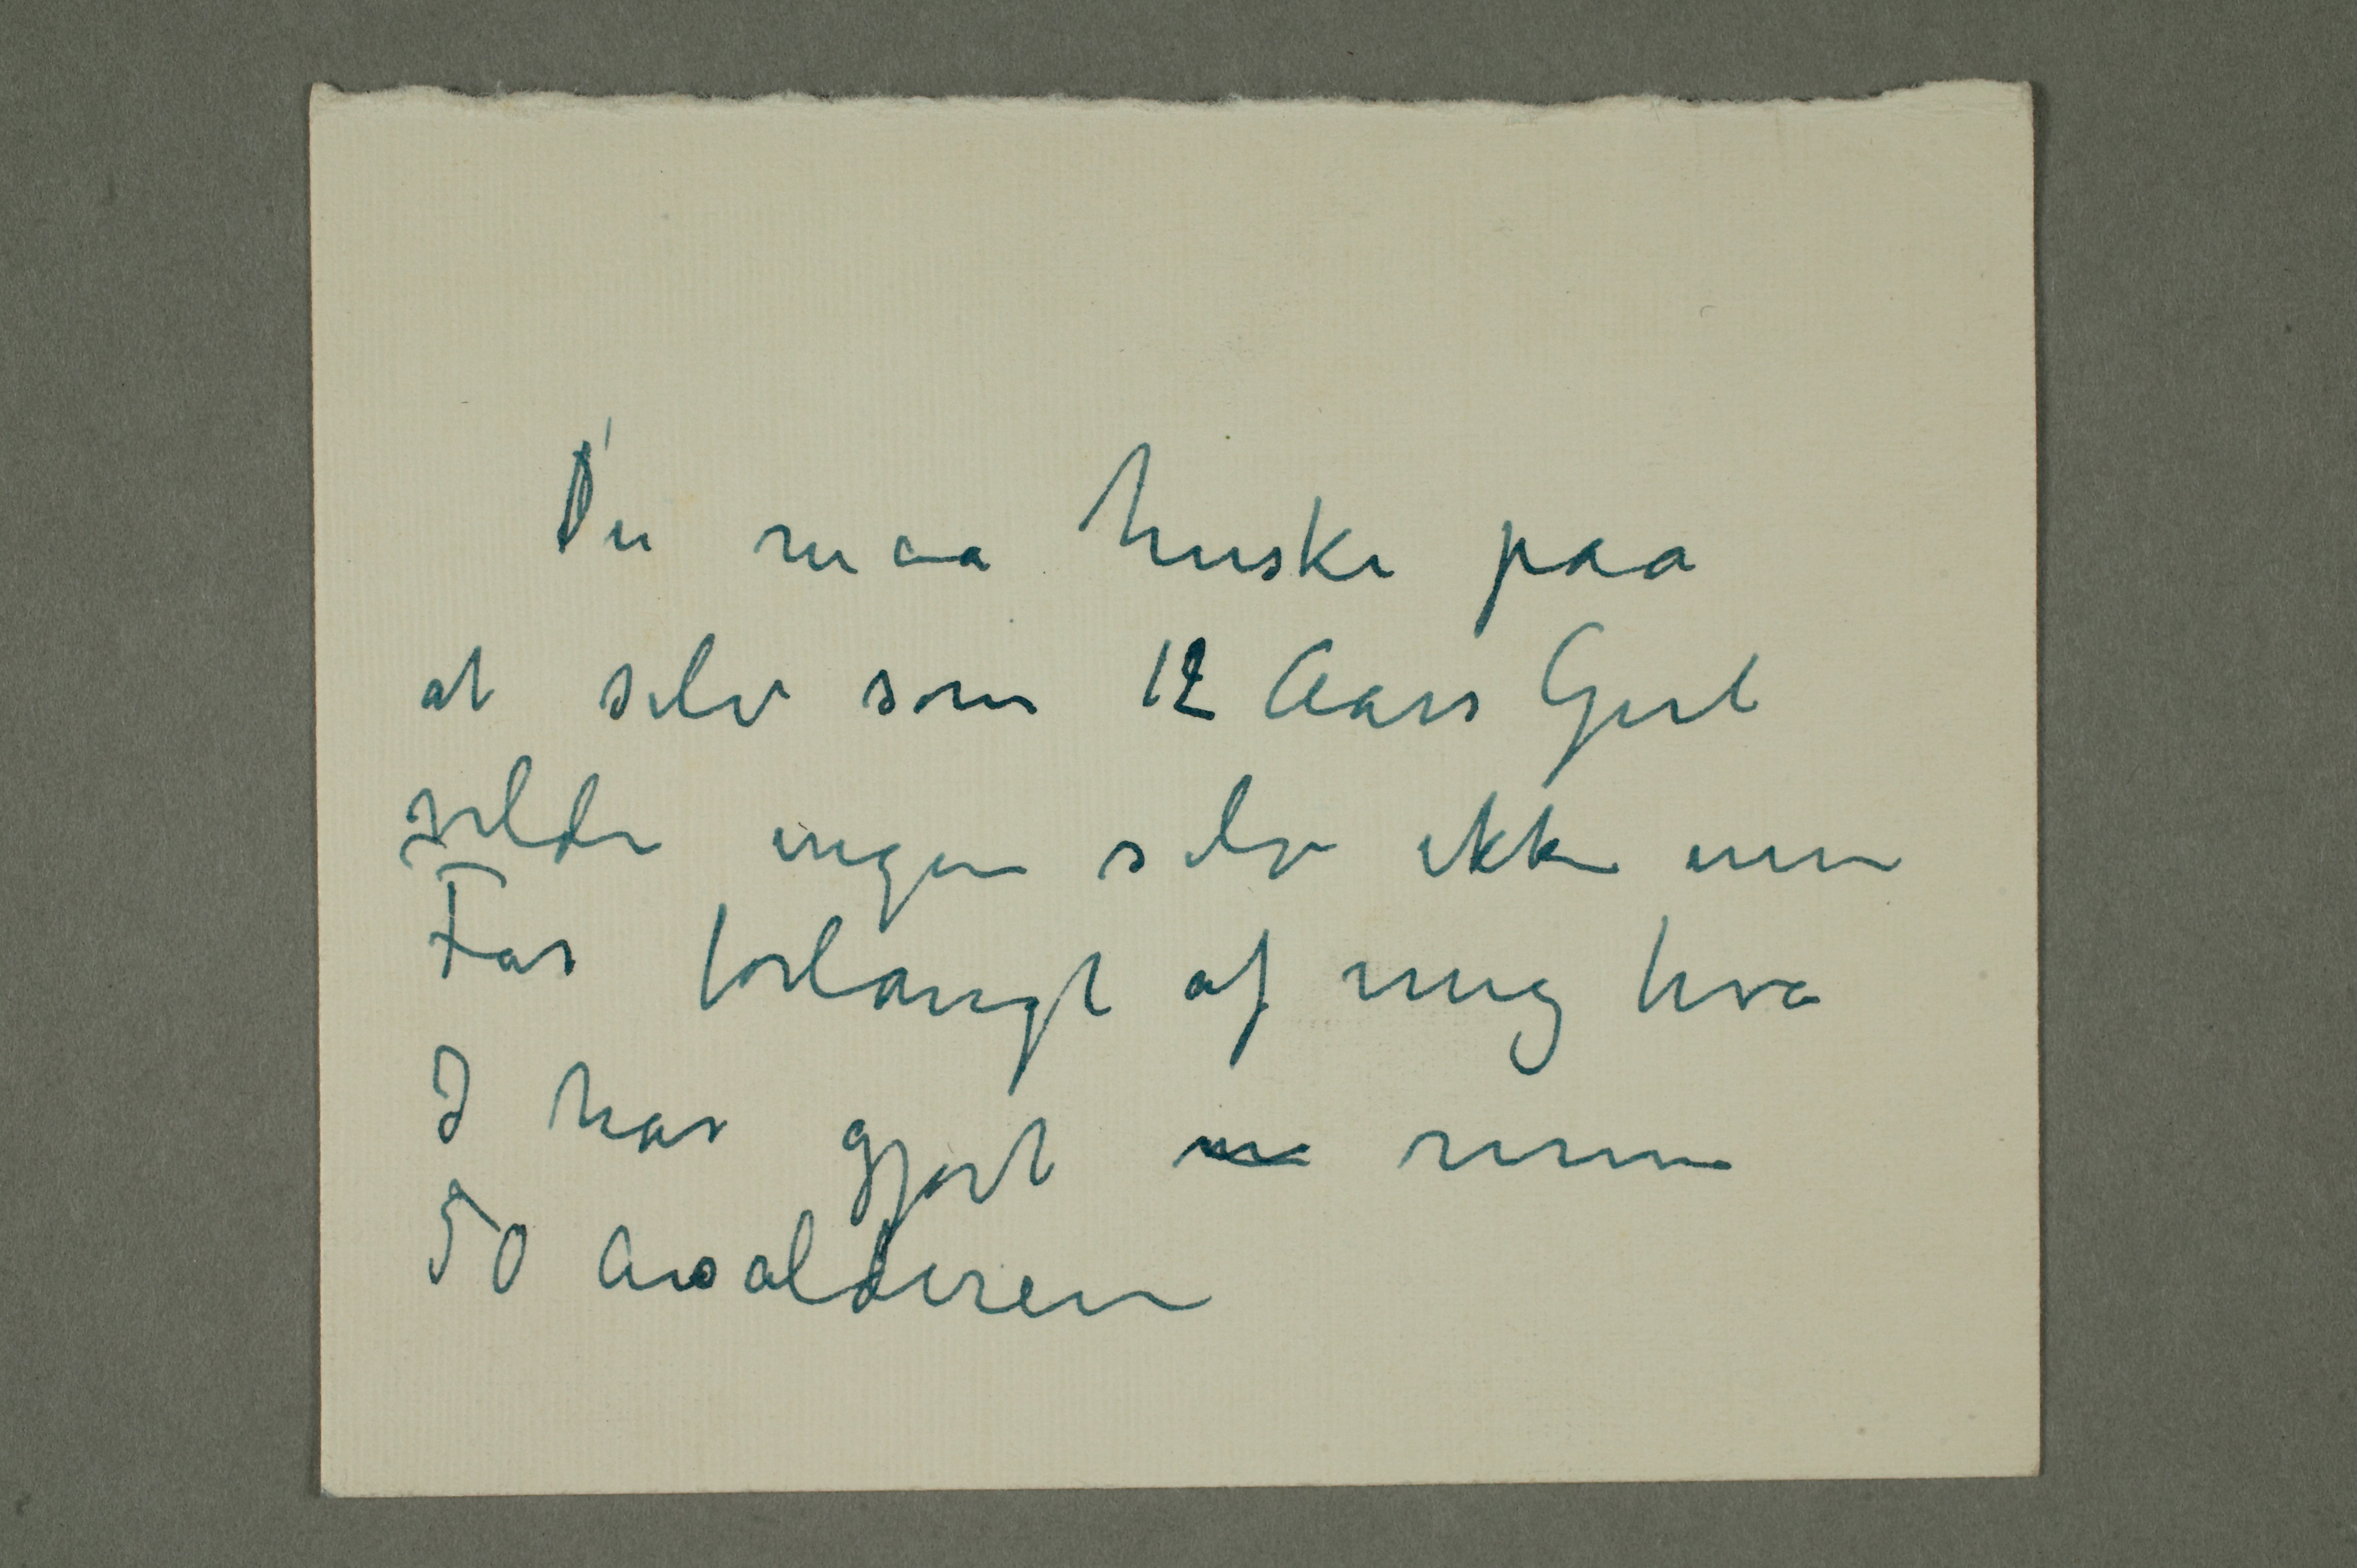 Du maa huske paa
at selv som 12 Aars Gut
vilde ingen selv ikke min
Far forlangt af mig hva
I har gjort
50 Aarsalderen